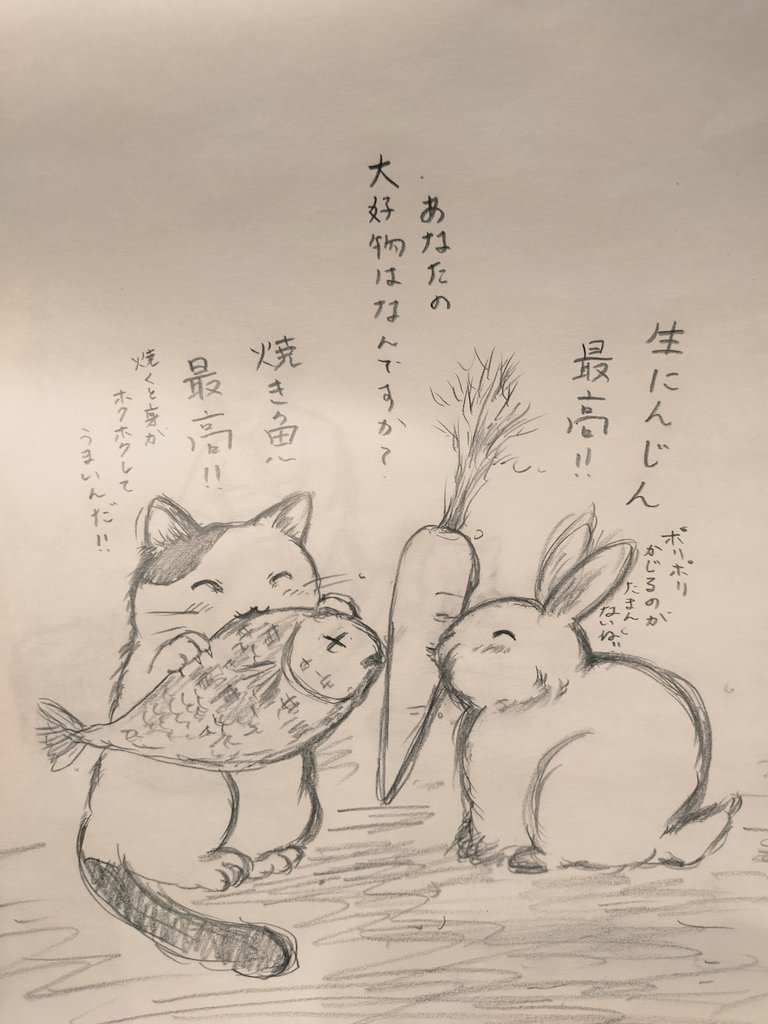 あなたの
大好物はなんですか?
生にんじん
最高!!
ポリポリ
かじるのが
たまんし
ないね!!
焼き魚
最高!!
焼くと身が
ホクホクして
うまいんだ!!